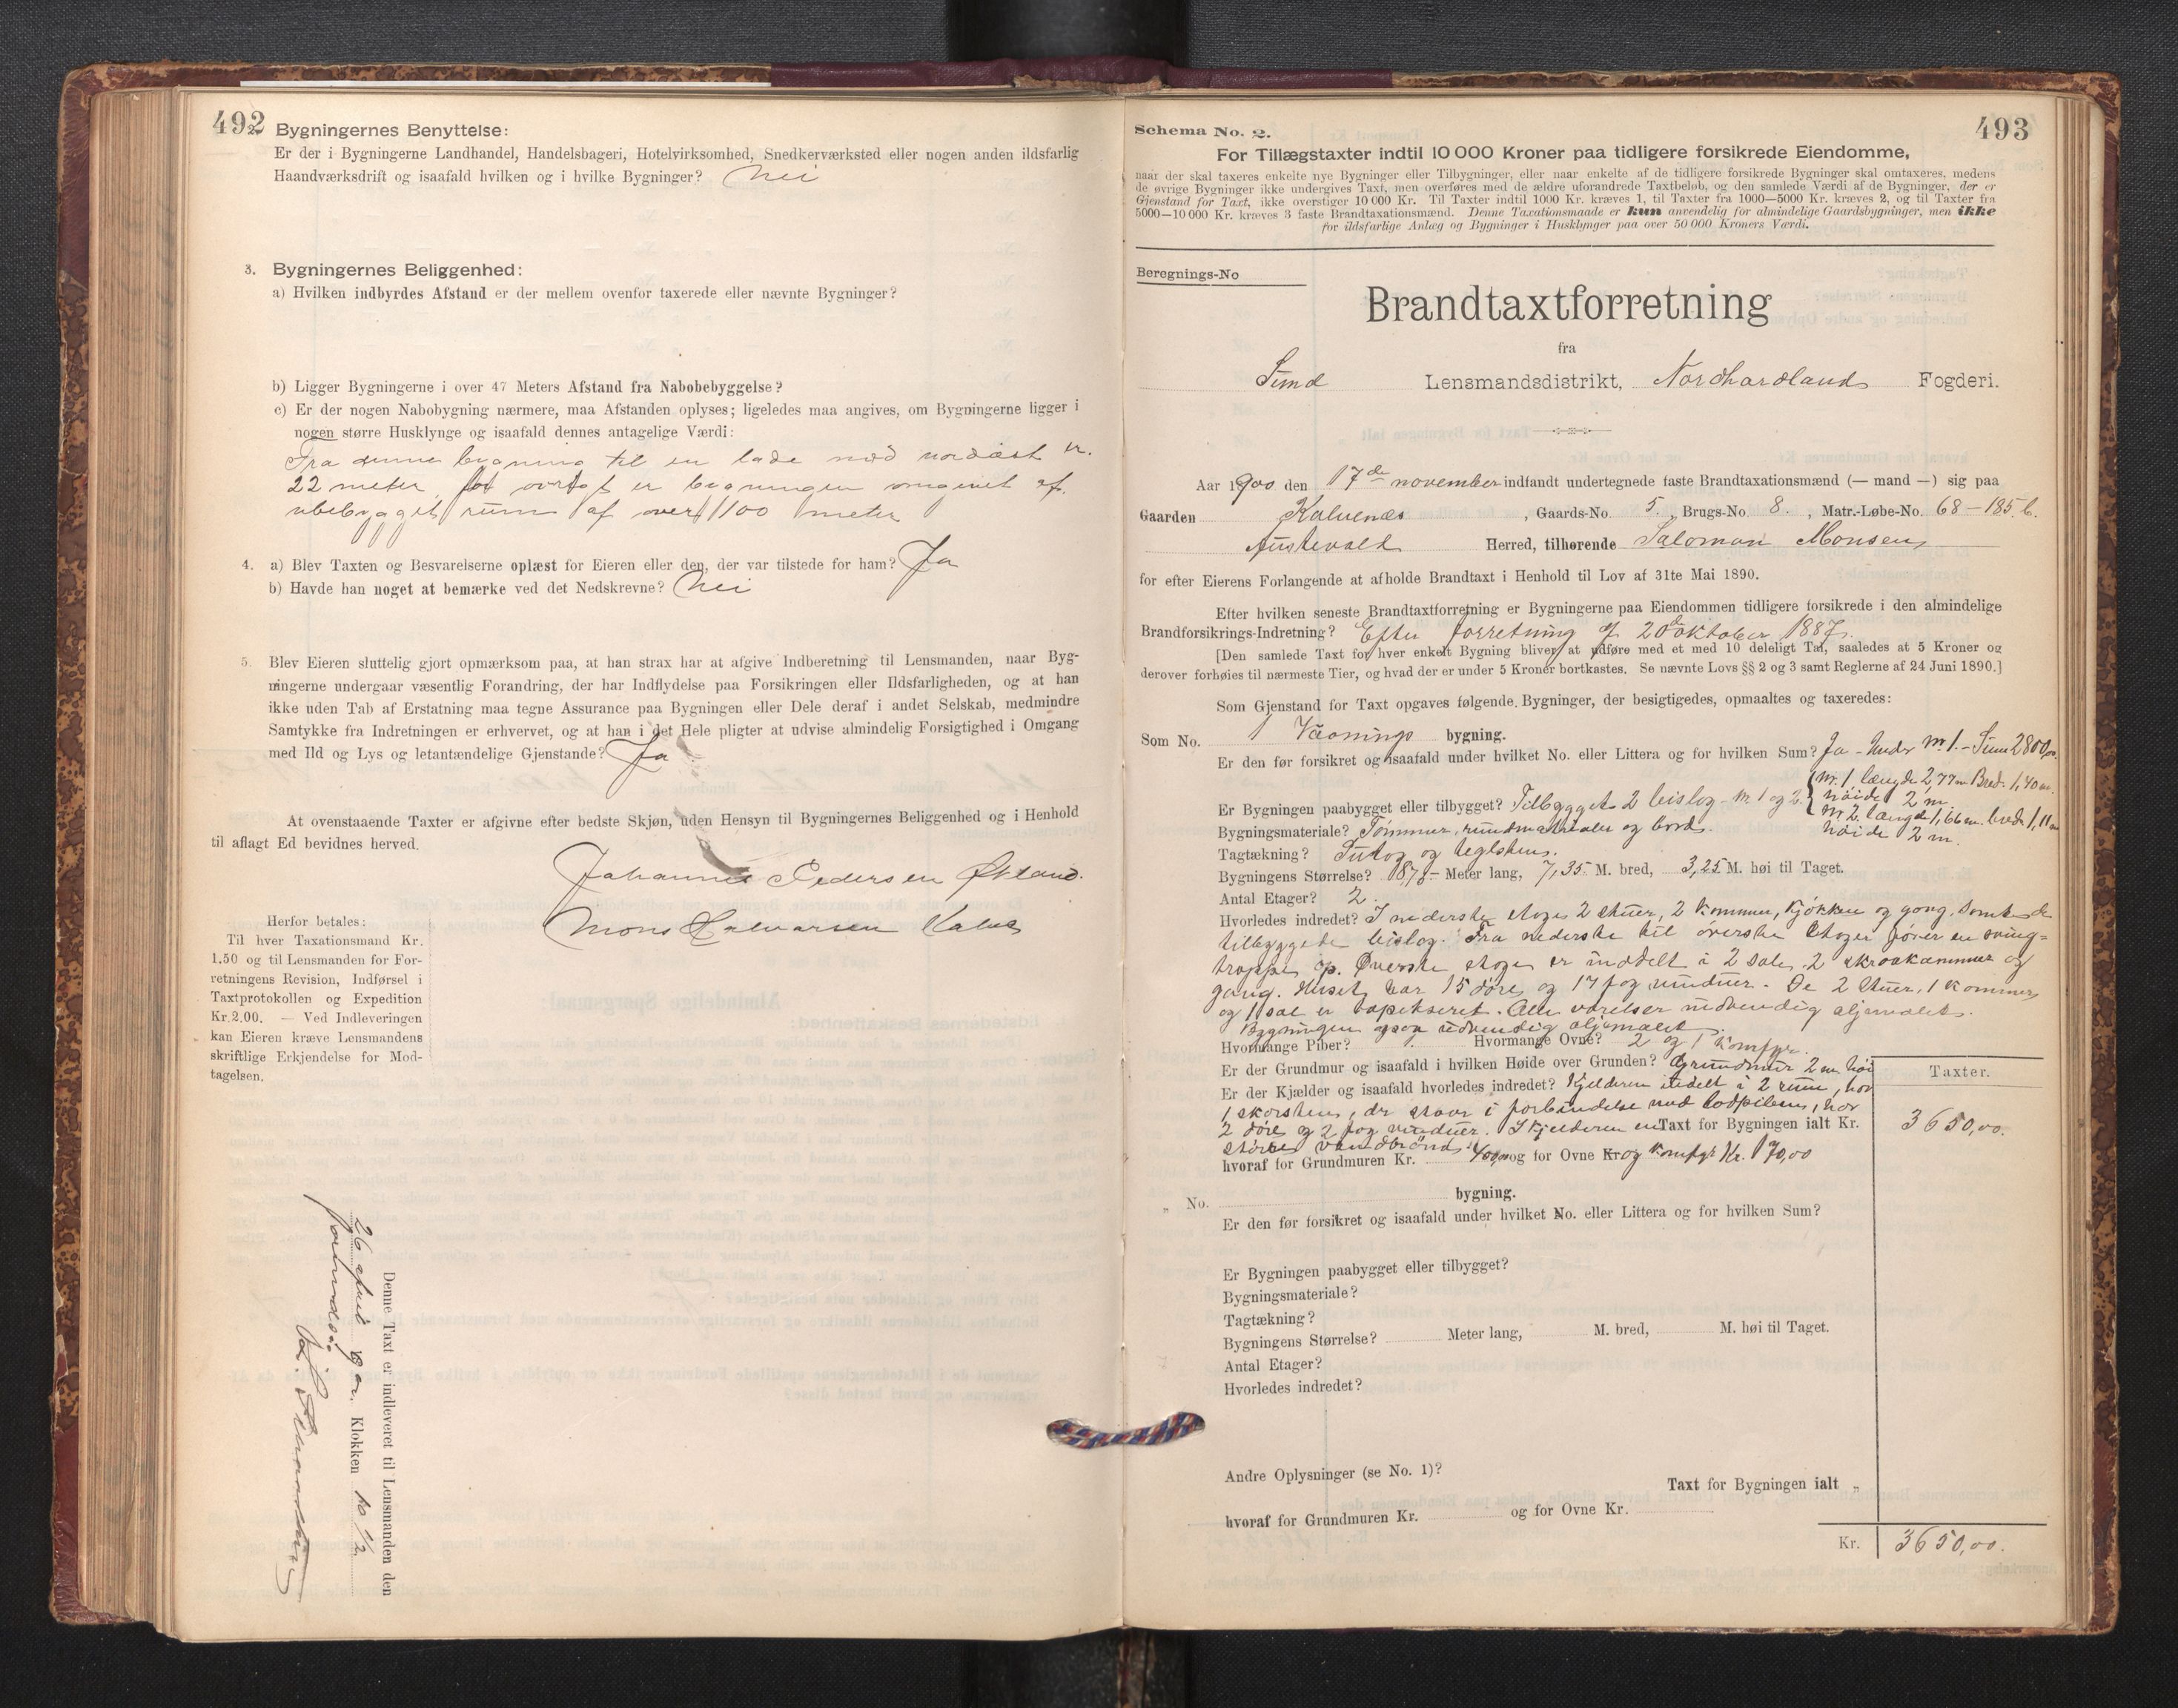 492
2. Bygningernes Benyttelse:
Er der i Bygningerne Landhandel, Handelsbageri, Hotelvirksomhed, Snedkerværksted eller nogen anden ildsfarlig
Haandværksdrift og isaafald hvilken og i hvilke Bygninger? Nei
3. Bygningernes Beliggenhed:
a) Hvilken indbyrdes Afstand er der mellem ovenfor taxerede eller nævnte Bygninger?
b) Ligger Bygningerne i over 47 Meters Afstand fra Nabobebyggelse?
c) Er der nogen Nabobygning nærmere, maa Afstanden oplyses; ligeledes maa angives, om Bygningerne ligger i
nogen større Husklynge og isaafald dennes antagelige Værdi:
Fra denne bygning til en lade mod nordøst er
22 meter, for øvrigt er bygningen omgivet af
ubebygget rum af over 100 meter
4. a) Blev Taxten og Besvarelserne oplæst for Eieren eller den, der var tilstede for ham? Ja
b) Havde han noget at bemærke ved det Nedskrevne? Nei
5. Blev Eieren sluttelig gjort opmærksom paa, at han strax har at afgive Indberetning til Lensmanden, naar Byg-
ningerne undergaar væsentlig Forandring, der har Indflydelse paa Forsikringen eller Ildsfarligheden, og at han
ikke uden Tab af Erstatning maa tegne Assurance paa Bygningen eller Dele deraf i andet Selskab, medmindre
Samtykke fra Indretningen er erhvervet, og at han i det Hele pligter at udvise almindelig Forsigtighed i Omgang
med Ild og Lys og letantændelige Gjenstande? Ja
At ovenstaaende Taxter er afgivne efter bedste Skjøn, uden Hensyn til Bygningernes Beliggenhed og i Henhold
til aflagt Ed bevidnes herved.
Johannes Pedersen Økland.
Mons Halvarsen Kalve
Herfor betales:
Til hver Taxationsmand Kr.
1.50 og til Lensmanden for For-
retningens Revision, Indførsel i
Taxtprotokollen og Expedition
Kr. 2.00. — Ved Indleveringen
kan Eieren kræve Lensmandens
skriftlige Erkjendelse for Mod-
tagelsen.
Denne Taxt er indleveret til Lensmanden den
26 april 1901. Klokken 10 1/2
formidd.
493
Schema No. 2.
For Tillægstaxter indtil 10 000 Kroner paa tidligere forsikrede Eiendomme,
naar der skal taxeres enkelte nye Bygninger eller Tilbygninger, eller naar enkelte af de tidligere forsikrede Bygninger skal omtaxeres, medens
de øvrige Bygninger ikke undergives Taxt, men overføres med de ældre uforandrede Taxtbeløb, og den samlede Værdi af de Bygninger, der er
Gjenstand for Taxt, ikke overstiger 10 000 Kr. Til Taxter indtil 1000 Kr. kræves 1, til Taxter fra 1000—5000 Kr. kræves 2, og til Taxter fra
5000—10 000 Kr. kræves 3 faste Brandtaxationsmænd. Denne Taxationsmaade er kun anvendelig for almindelige Gaardsbygninger, men ikke
for ildsfarlige Anlæg og Bygninger i Husklynger paa over 50 000 Kroners Værdi.
Beregnings-No
Brandtaxtforretning
fra
Sund Lensmandsdistrikt, Nordhordlands Fogderi.
Aar 1900 den 17de november indfandt undertegnede faste Brandtaxationsmænd (— mand —) sig paa
Gaarden Kalvenæs, Gaards-No. 5., Brugs-No. 8., Matr.-Løbe-No. 68 – 185 b.
Austevold Herred, tilhørende Salomon Monsen
for efter Eierens Forlangende at afholde Brandtaxt i Henhold til Lov af 31te Mai 1890.
Efter hvilken seneste Brandtaxtforretning er Bygningerne paa Eiendommen tidligere forsikrede i den almindelige
Brandforsikrings-Indretning? Efter forretning af 20de oktober 1887.
[Den samlede Taxt for hver enkelt Bygning bliver at udføre med et med 10 deleligt Tal, saaledes at 5 Kroner og
derover forhøies til nærmeste Tier, og hvad der er under 5 Kroner bortkastes. Se nævnte Lovs §§ 2 og 3 samt Reglerne af 24 Juni 1890.]
Som Gjenstand for Taxt opgaves følgende Bygninger, der besigtigedes, opmaaltes og taxeredes:
Som No. 1 Vaanings bygning.
Er den før forsikret og isaafald under hvilket No. eller Littera og for hvilken Sum? Ja – Under Nr. 1. – Sum 2800,00.
Er Bygningen paabygget eller tilbygget? Tilbygget 2 bislog – Nr 1 og 2. { Nr. 1 længde 2,77 m Bred. 1,40 m.
høide 2 m.
Nr 2. længde 1,66 m. bred 1,11 m
høide 2 m.
Bygningsmateriale? Tømmer, rundmaterialer og bord.
Tagtækning? Sutag og teglsten.
Bygningens Størrelse? Meter lang, 7,35 M. bred, 3,25 M. høi til Taget.
Antal Etager? 2.
Hvorledes indredet? I nederste etage 2 stuer, 2 kammer, kjøkken og gang, samt de
tilbyggede bislog. Fra nederste til øverste etage fører en sving-
trappe op. Øverste etage er inddelt i 2 sale, 2 skraakammer og
gang. Huset har 15 døre og 17 fag vinduer. De 2 stuer, 1 kammer
og 1 sal er tapetseret. Alle værelser indvendig oljemalet.
Bygningen ogsaa udvendig oljemalet.
Hvormange Piber? Hvormange Ovne? 2 og 1 komfyr.
Er der Grundmur og isaafald i hvilken Høide over Grunden? Grundmur 2 m. høi
Er der Kjælder og isaafald hvorledes indredet? Kjelderen indelt i 2 rum, har
1 skorsten, der staar i forbindelse med lodpiben, har
2 døre og 2 fag vinduer. I kjelderen en Taxt for Bygningen ialt Kr.
større vandbrønd
hvoraf for Grundmuren Kr. 400,00 og for Ovne Kr og komfyr Kr. 170,00
Taxter.
3650,00.
„ No. bygning.
Er den før forsikret og isaafald under hvilket No. eller Littera og for hvilken Sum?
Er Bygningen paabygget eller tilbygget?
Bygningsmateriale?
Tagtækning?
Bygningens Størrelse? Meter lang, M. bred, M. høi til Taget.
Antal Etager?
Hvorledes indredet?
Andre Oplysninger (se No. 1)? Taxt for Bygningen ialt „
hvoraf for Grundmuren Kr. og for Ovne Kr.
Kr. 3650,00.